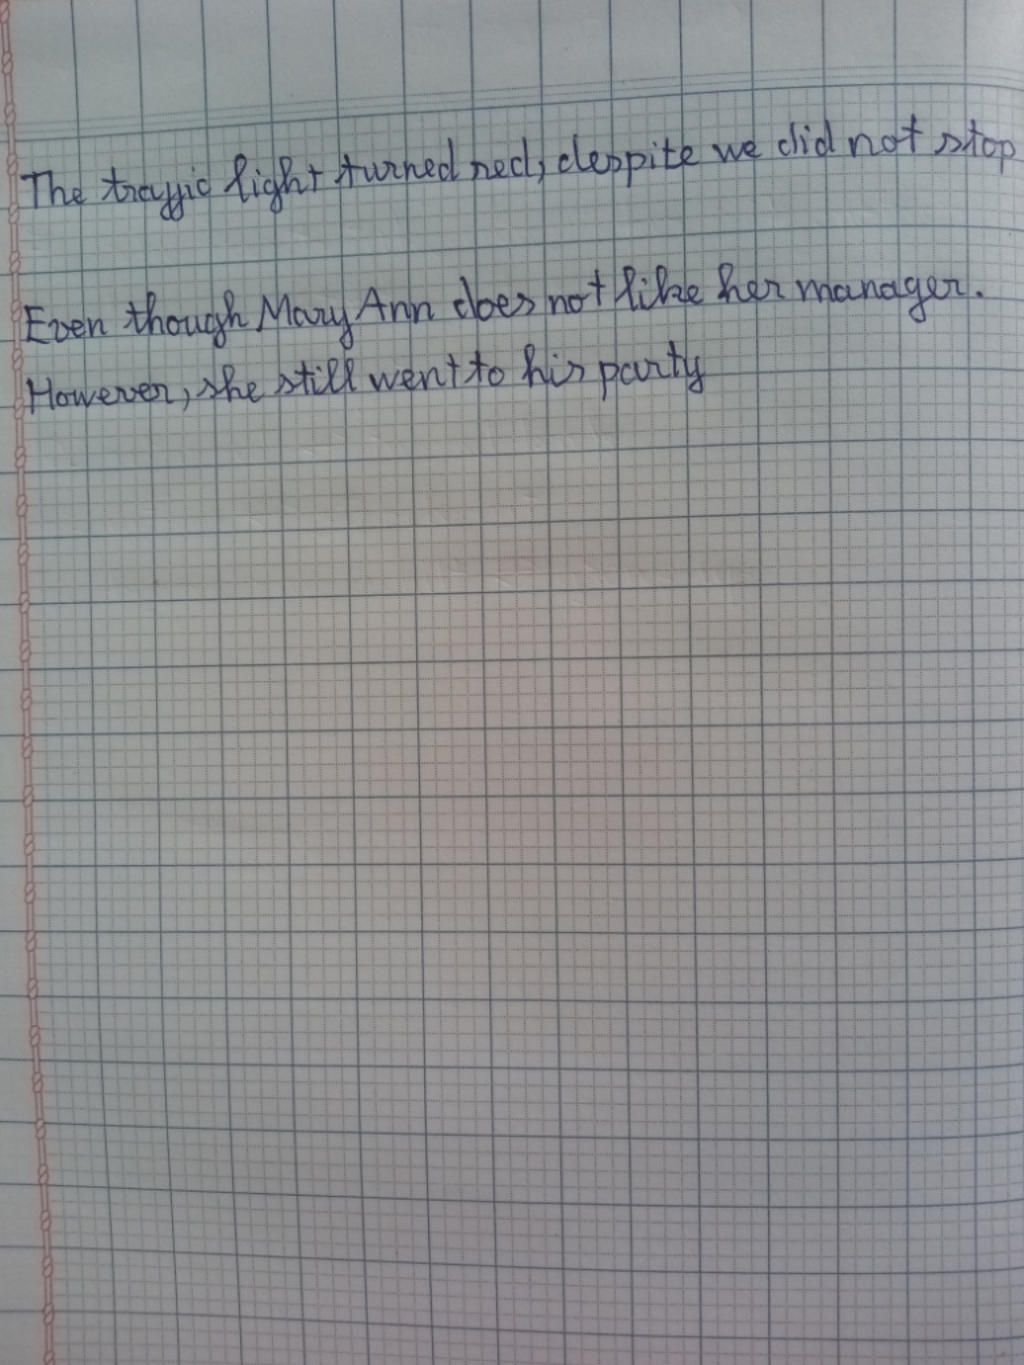 The traffic light turned red, despite we did not stop
Even though Mary Ann does not like her manager.
However, she still went to his party